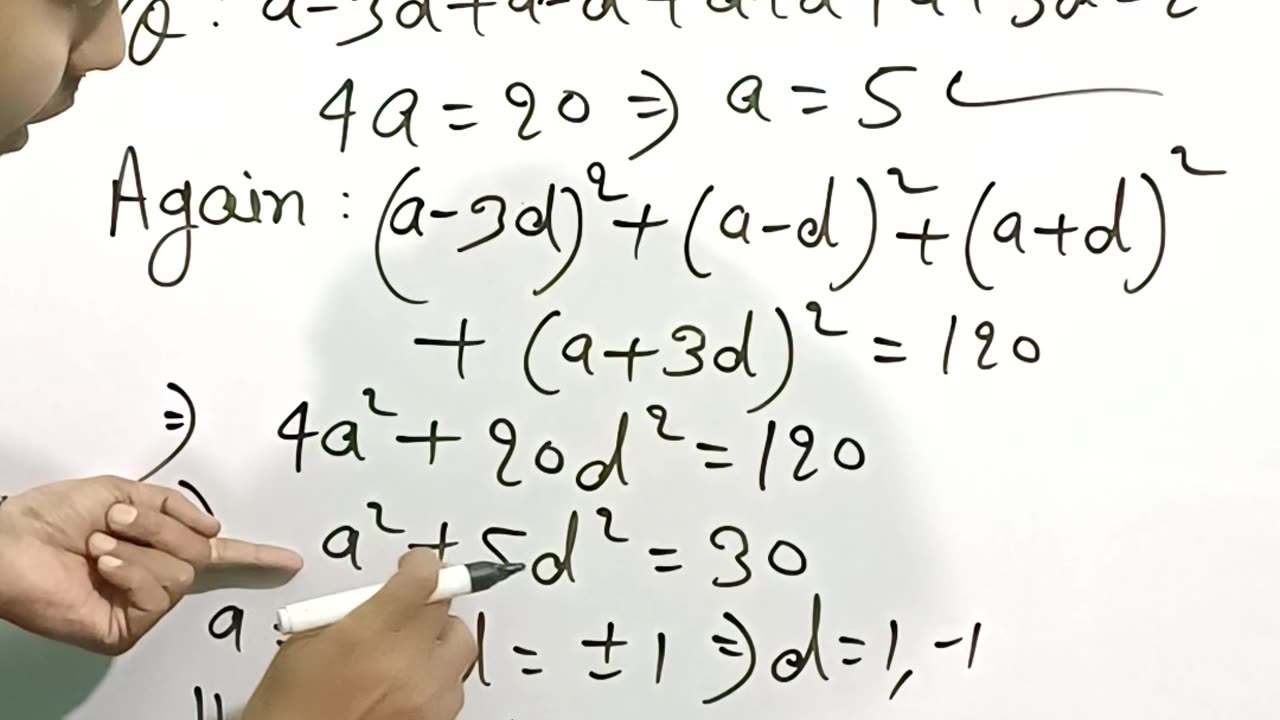 : a-3d+a-d+a+d+a+3d=2
4a=20 ⇒ a=5
Again: (a-3d)²+(a-d)²+(a+d)²
+(a+3d)²=120
⇒ 4a²+20d²=120
a²+5d²=30
a d=±1 ⇒ d=1,-1